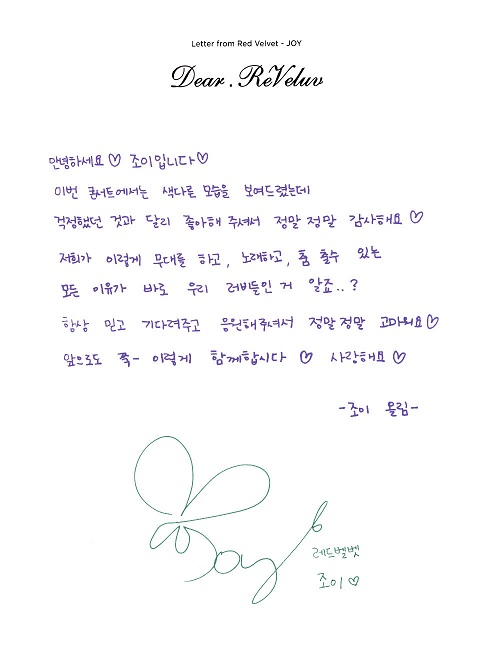 Letter from Red Velvet - JOY
Dear. ReVeluv
안녕하세요♡ 조이입니다♡
이번 콘서트에서는 색다른 모습을 보여드렸는데
걱정했던 것과 달리 좋아해 주셔서 정말 정말 감사해요♡
저희가 이렇게 무대를 하고, 노래하고, 춤 출수 있는
모든 이유가 바로 우리 러비들인 거 알죠..?
항상 믿고 기다려주고 응원해주셔서 정말정말 고마워요♡
앞으로도 쭉- 이렇게 함께합시다 ♡ 사랑해요♡
-조이 올림-
Joy
레드벨벳
조이♡